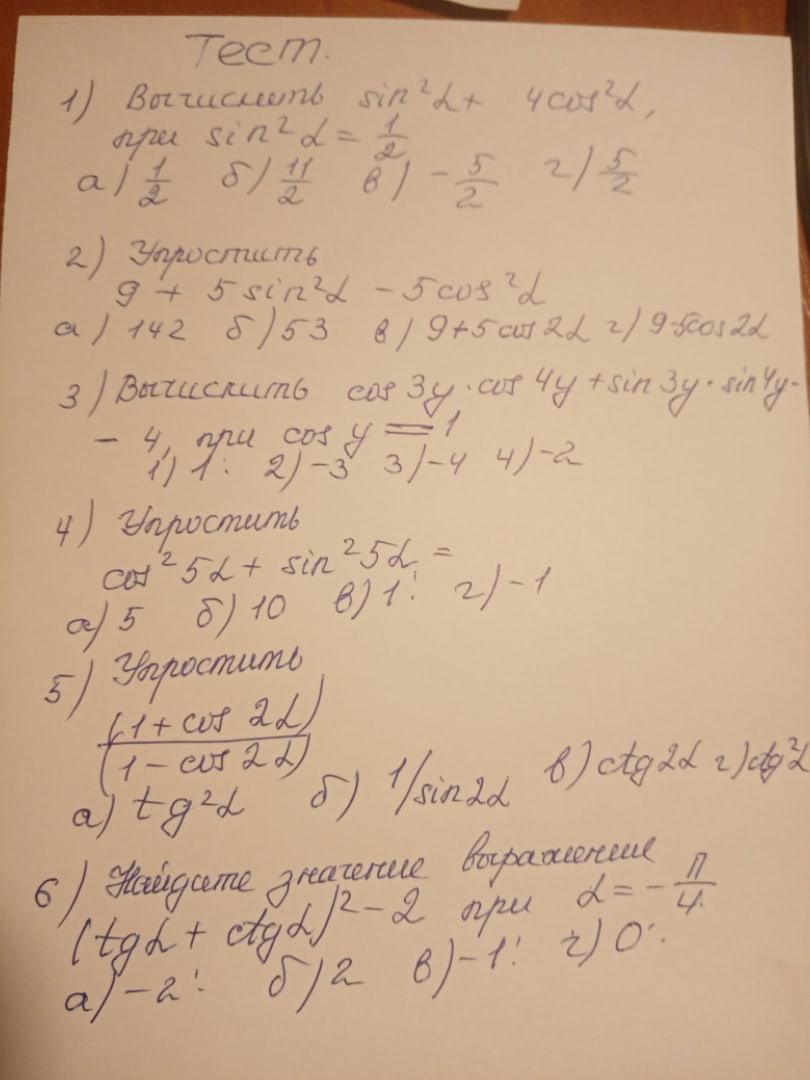 Тест.
1) Вычислить sin²α + 4cos²α,
при sin²α = 1/2
а) 1/2 б) 11/2 в) -5/2 г) 5/2
2) Упростить
9 + 5 sin²α - 5cos²α
а) 142 б) 53 в) 9+5 cos 2α г) 9-5cos 2α
3) Вычислить cos 3y · cos 4y + sin 3y · sin 4y -
- 4, при cos y = 1
1) 1; 2) -3 3) -4 4) -2
4) Упростить
cos²5α + sin²5α =
а) 5 б) 10 в) 1; г) -1
5) Упростить
(1 + cos 2α)
(1 - cos 2α)
а) tg²α б) 1/sin2α в) ctg2α г) ctg²α
6) Найдите значение выражения
(tgα + ctgα)² - 2 при α = -П/4.
а) -2; б) 2 в) -1; г) 0;